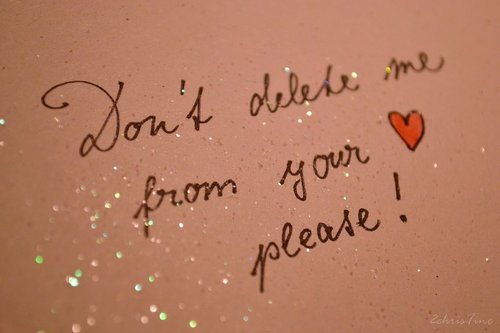 Don't delete me
from your ♥
please!
2chrisTine